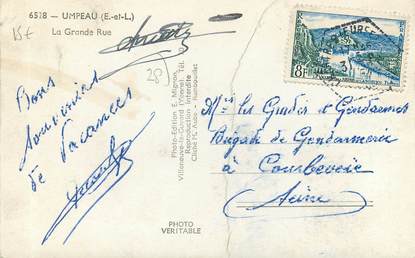 6528 - UMPEAU (E.-et-L.)
La Grande Rue
15f
28
Bons
souvenirs
de Vacances
Photo-Edition E. Mignon,
Reproduction interdite
PHOTO
VERITABLE
8F
Mrs les Gradés et Gendarmes
Brigade de Gendarmerie
à Courbevoie
Seine